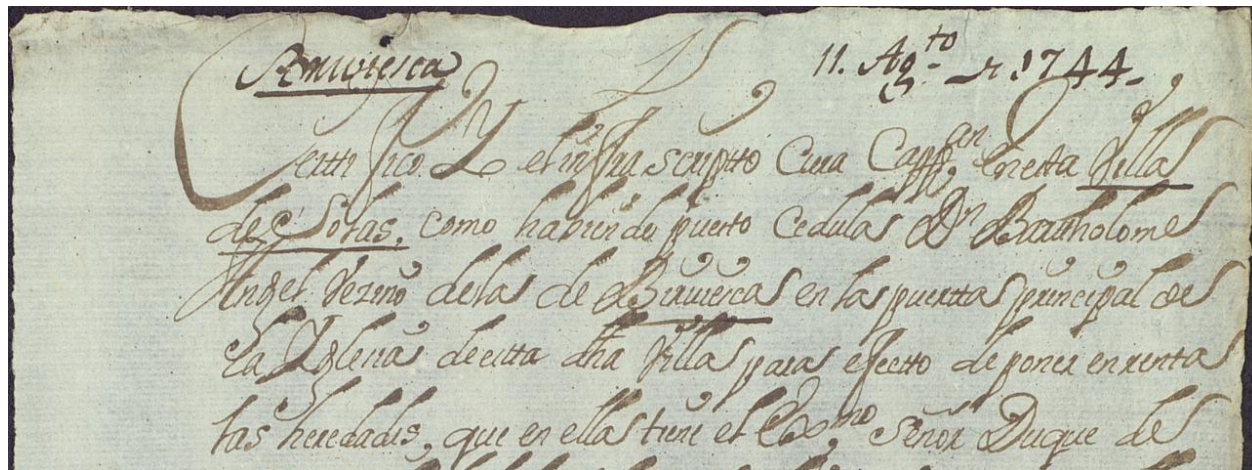 Briviesca 11. Ag.to de 1744.
Certifico Yo el infrascriptto Cura Capp.an en esta Villa
de Solas, como habiendo puesto Cedulas Dn Bartholome
Angel Vezino de la de Birviesca en las puertta principal de
la Yglesia de estta dha Villa para efectto de poner en renta
las heredades, que en ella tiene el Exmo Señor Duque de